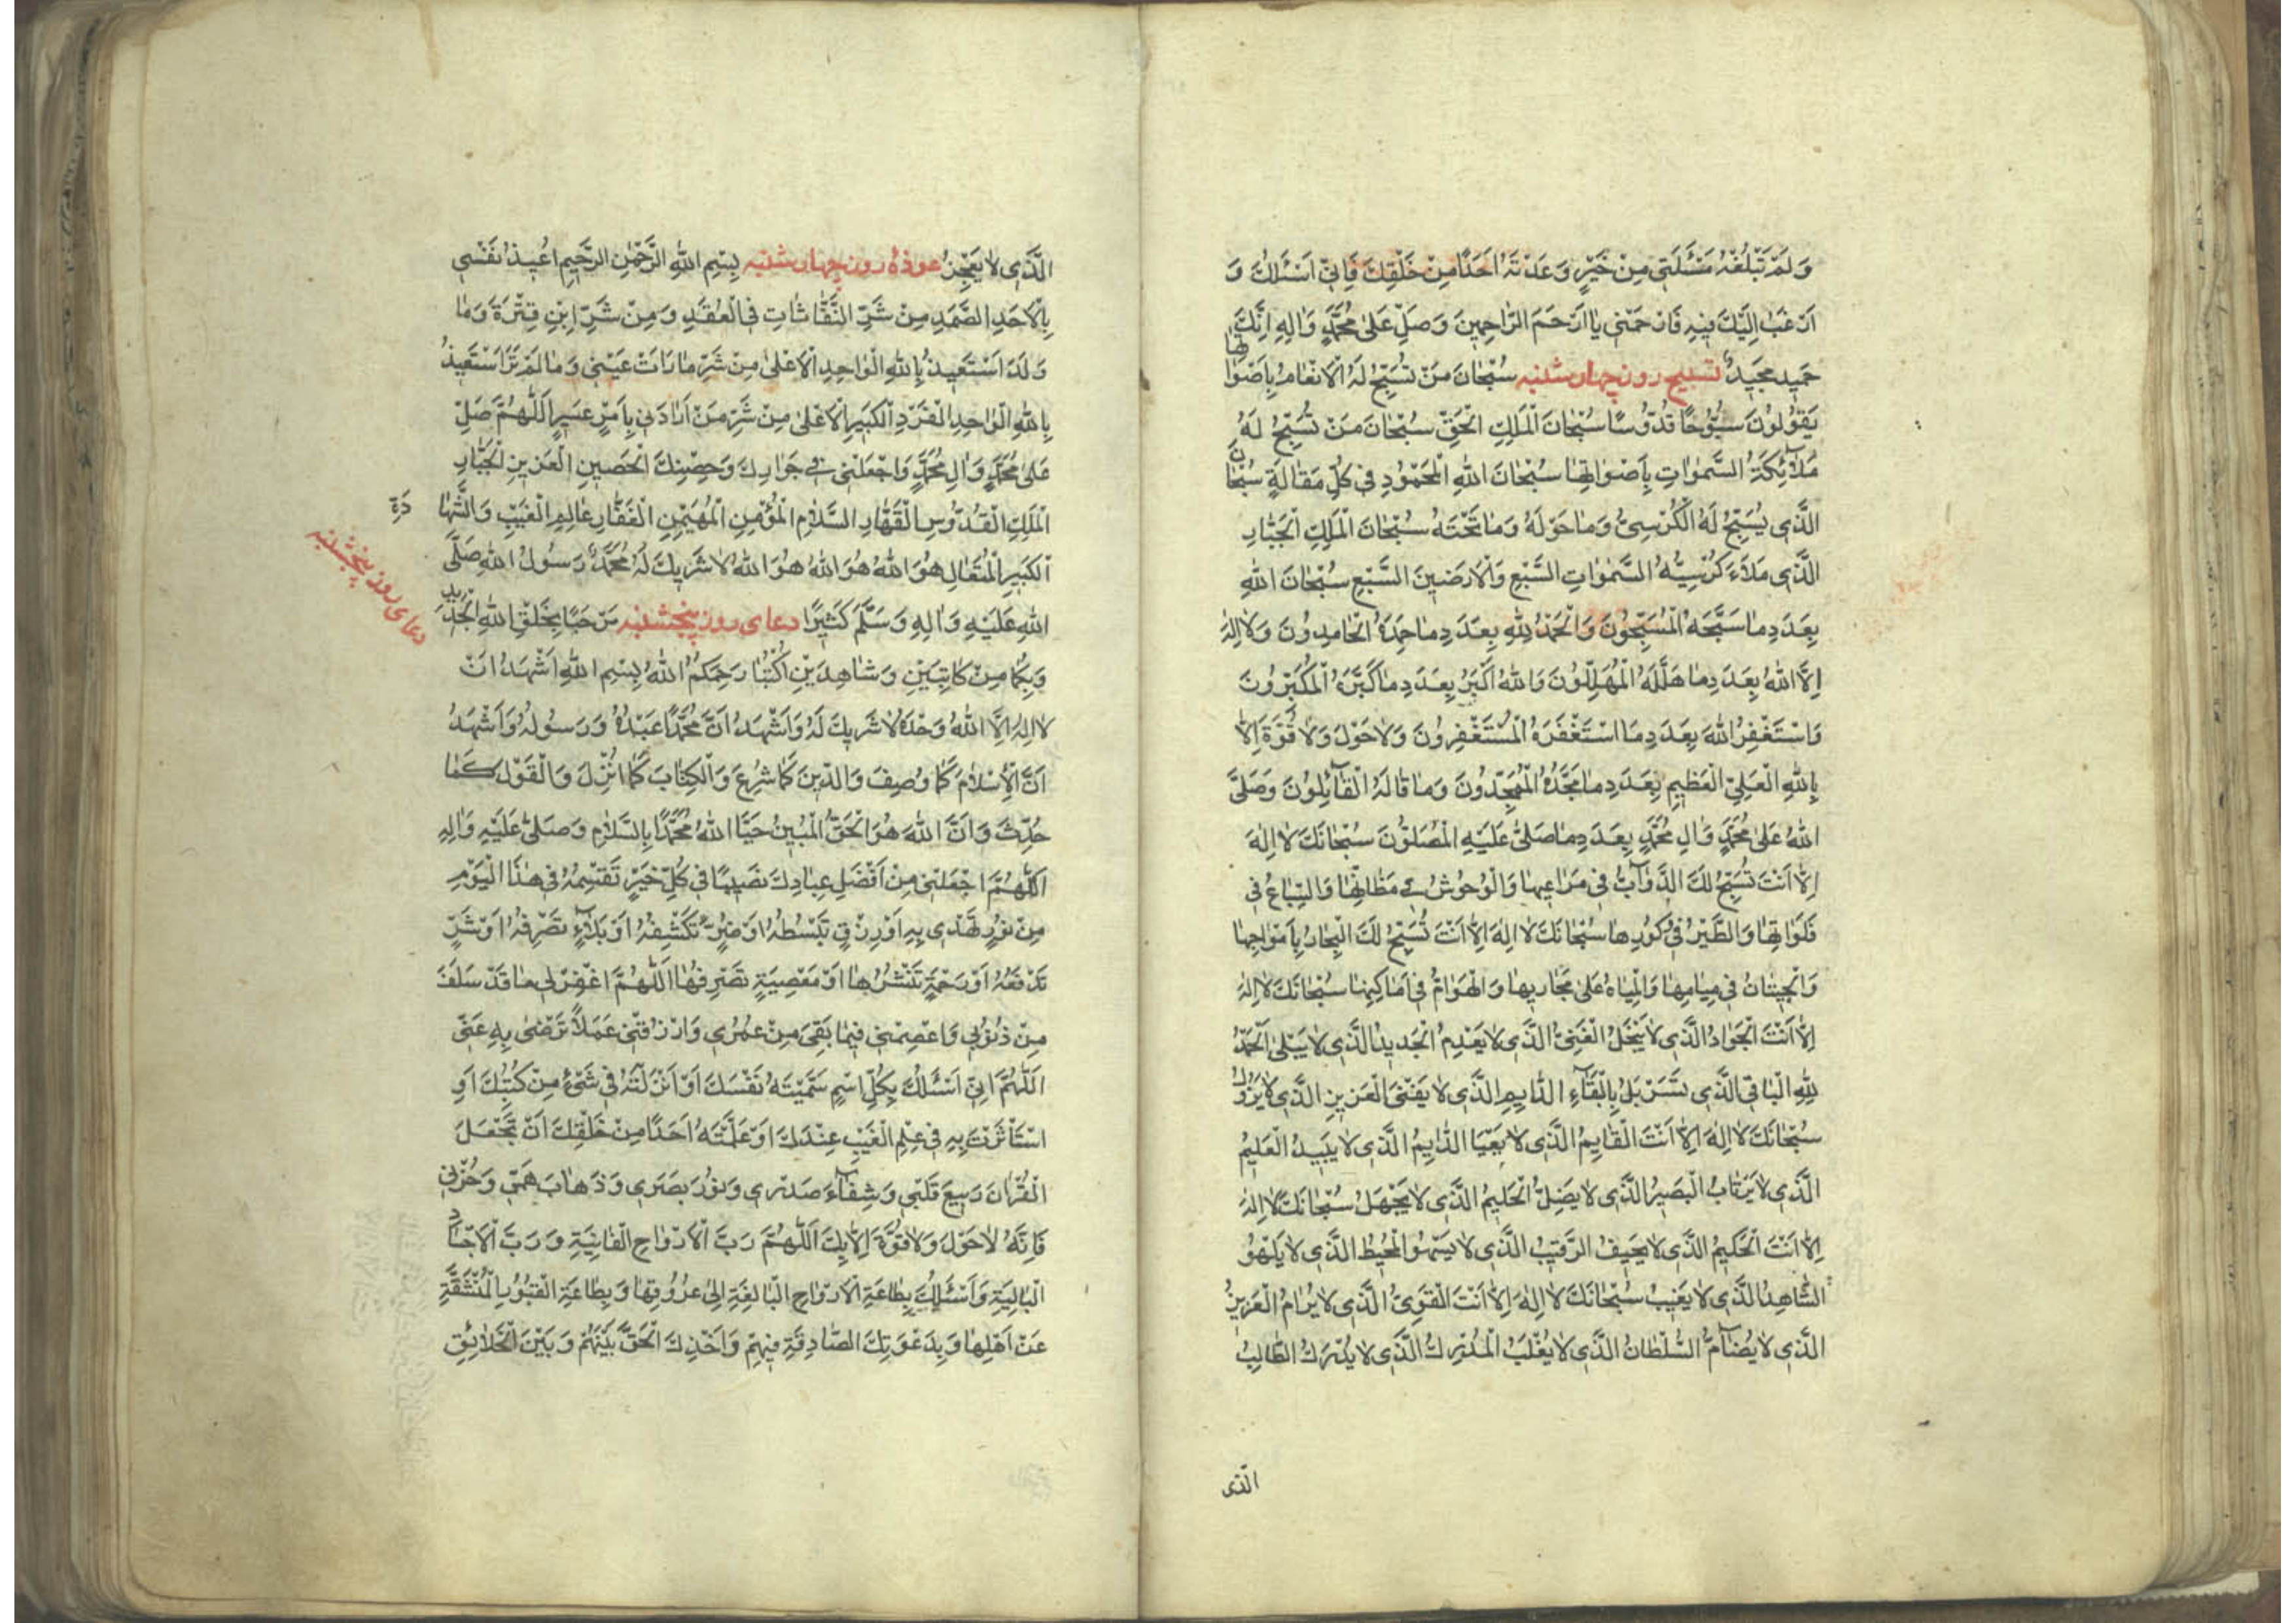 وَلَمْ تَبْلُغْهُ مَسْئَلَتِي مِنْ خَيْرٍ وَعَدْتَهُ اَحَدًا مِنْ خَلْقِكَ فَاِنِّي اَسْئَلُكَ وَ
اَرْغَبُ اِلَيْكَ فِيهِ فَارْحَمْنِي يَا اَرْحَمَ الرَّاحِمِينَ وَصَلِّ عَلٰى مُحَمَّدٍ وَاٰلِهِ اِنَّكَ
حَمِيدٌ مَجِيدٌ تسبیح روز چهارشنبه سُبْحَانَ مَنْ تُسَبِّحُ لَهُ الْاَنْعَامُ بِاَصْوَاتِهَا
يَقُولُونَ سُبُّوحًا قُدُّوسًا سُبْحَانَ الْمَلِكِ الْحَقِّ سُبْحَانَ مَنْ تُسَبِّحُ لَهُ
مَلَآئِكَةُ السَّمٰوَاتِ بِاَصْوَاتِهَا سُبْحَانَ اللهِ الْمَحْمُودِ فِي كُلِّ مَقَالَةٍ سُبْحَانَ
الَّذِي يُسَبِّحُ لَهُ الْكُرْسِيُّ وَمَا حَوْلَهُ وَمَا تَحْتَهُ سُبْحَانَ الْمَلِكِ الْجَبَّارِ
الَّذِي مَلَاَءَ كُرْسِيُّهُ السَّمٰوَاتِ السَّبْعِ وَالْاَرَضِينَ السَّبْعِ سُبْحَانَ اللهِ
بِعَدَدِ مَا سَبَّحَهُ الْمُسَبِّحُونَ وَالْحَمْدُ لِلّٰهِ بِعَدَدِ مَا حَمِدَهُ الْحَامِدُونَ وَلَا اِلٰهَ
اِلَّا اللهُ بِعَدَدِ مَا هَلَّلَهُ الْمُهَلِّلُونَ وَاللهُ اَكْبَرُ بِعَدَدِ مَا كَبَّرَهُ الْمُكَبِّرُونَ
وَاَسْتَغْفِرُ اللهَ بِعَدَدِ مَا اسْتَغْفَرَهُ الْمُسْتَغْفِرُونَ وَلَا حَوْلَ وَلَا قُوَّةَ اِلَّا
بِاللهِ الْعَلِيِّ الْعَظِيمِ بِعَدَدِ مَا مَجَّدَهُ الْمُمَجِّدُونَ وَمَا قَالَهُ الْقَآئِلُونَ وَصَلَّى
اللهُ عَلٰى مُحَمَّدٍ وَاٰلِ مُحَمَّدٍ بِعَدَدِ مَا صَلّٰى عَلَيْهِ الْمُصَلُّونَ سُبْحَانَكَ لَا اِلٰهَ
اِلَّا اَنْتَ تُسَبِّحُ لَكَ الدَّوَآبُّ فِي مَرَاعِيهَا وَالْوُحُوشُ فِي مَظَانِّهَا وَالسِّبَاعُ فِي
فَلَوَاتِهَا وَالطَّيْرُ فِي وُكُورِهَا سُبْحَانَكَ لَا اِلٰهَ اِلَّا اَنْتَ تُسَبِّحُ لَكَ الْبِحَارُ بِاَمْوَاجِهَا
وَالْحِيتَانُ فِي مِيَاهِهَا وَالْمِيَاهُ عَلٰى مَجَارِيهَا وَالْهَوَامُّ فِي اَمَاكِنِهَا سُبْحَانَكَ لَا اِلٰهَ
اِلَّا اَنْتَ الْجَوَادُ الَّذِي لَا يَبْخَلُ الْغَنِيُّ الَّذِي لَا يَعْدِمُ الْجَدِيدُ الَّذِي لَا يَبْلٰى اَلْحَمْدُ
لِلّٰهِ الْبَاقِي الَّذِي تَسَرْبَلَ بِالْبَقَآءِ الدَّايِمِ الَّذِي لَا يَفْنَى الْعَزِيزِ الَّذِي لَا يَزُولُ
سُبْحَانَكَ لَا اِلٰهَ اِلَّا اَنْتَ الْقَايِمُ الَّذِي لَا يَعْيَا الدَّايِمُ الَّذِي لَا يَبِيدُ الْعَلِيمُ
الَّذِي لَا يَرْتَابُ الْبَصِيرُ الَّذِي لَا يَضِلُّ الْحَلِيمُ الَّذِي لَا يَجْهَلُ سُبْحَانَكَ لَا اِلٰهَ
اِلَّا اَنْتَ الْحَكِيمُ الَّذِي لَا يَحِيفُ الرَّقِيبُ الَّذِي لَا يَسْهُو الْمُحِيطُ الَّذِي لَا يَلْهُو
الشَّاهِدُ الَّذِي لَا يَغِيبُ سُبْحَانَكَ لَا اِلٰهَ اِلَّا اَنْتَ الْقَوِيُّ الَّذِي لَا يُرَامُ الْعَزِيزُ
الَّذِي لَا يُضَامُّ السُّلْطَانُ الَّذِي لَا يُغْلَبُ الْمُدْرِكُ الَّذِي لَا يُدْرَكُ الطَّالِبُ
الَّذی
الَّذِي لَا يَعْجِزُ عوذهٔ روز چهارشنبه بِسْمِ اللهِ الرَّحْمٰنِ الرَّحِيمِ اُعِيذُ نَفْسِي
بِالْاَحَدِ الصَّمَدِ مِنْ شَرِّ النَّفَّاثَاتِ فِي الْعُقَدِ وَمِنْ شَرِّ ابْنِ قِتْرَةَ وَمَا
وَلَدَ اَسْتَعِيذُ بِاللهِ الْوَاحِدِ الْاَعْلٰى مِنْ شَرِّ مَا رَاَتْ عَيْنِي وَمَا لَمْ تَرَ اَسْتَعِيذُ
بِاللهِ الْوَاحِدِ الْفَرْدِ الْكَبِيرِ الْاَعْلٰى مِنْ شَرِّ مَنْ اَرَادَنِي بِاَمْرٍ عَسِيرٍ اَللّٰهُمَّ صَلِّ
عَلٰى مُحَمَّدٍ وَاٰلِ مُحَمَّدٍ وَاجْعَلْنِي فِي جَوَارِكَ وَحِصْنِكَ الْحَصِينِ الْعَزِيزِ الْجَبَّارِ
الْمَلِكِ الْقُدُّوسِ الْقَهَّارِ السَّلَامِ الْمُؤْمِنِ الْمُهَيْمِنِ الْغَفَّارِ عَالِمِ الْغَيْبِ وَالشَّهَا
دَةِ
اَلْكَبِيرِ الْمُتَعَالِ هُوَ اللهُ هُوَ اللهُ هُوَ اللهُ لَا شَرِيكَ لَهُ مُحَمَّدٌ رَسُولُ اللهِ صَلَّى
دعای روز پنجشنبه
اللهُ عَلَيْهِ وَاٰلِهِ وَسَلَّمَ كَثِيرًا دعای روز پنجشنبه مَرْحَبًا بِخَلْقِ اللهِ الْجَدِيدِ
وَبِكُمَا مِنْ كَاتِبَيْنِ وَشَاهِدَيْنِ اُكْتُبَا رَحِمَكُمُ اللهُ بِسْمِ اللهِ اَشْهَدُ اَنْ
لَا اِلٰهَ اِلَّا اللهُ وَحْدَهُ لَا شَرِيكَ لَهُ وَاَشْهَدُ اَنَّ مُحَمَّدًا عَبْدُهُ وَرَسُولُهُ وَاَشْهَدُ
اَنَّ الْاِسْلَامَ كَمَا وُصِفَ وَالدِّينَ كَمَا شُرِعَ وَالْكِتَابَ كَمَا اُنْزِلَ وَالْقَوْلَ كَمَا
حُدِّثَ وَاَنَّ اللهَ هُوَ الْحَقُّ الْمُبِينُ حَيَّا اللهُ مُحَمَّدًا بِالسَّلَامِ وَصَلّٰى عَلَيْهِ وَاٰلِهِ
اَللّٰهُمَّ اجْعَلْنِي مِنْ اَفْضَلِ عِبَادِكَ نَصِيبًا فِي كُلِّ خَيْرٍ تَقْسِمُهُ فِي هٰذَا الْيَوْمِ
مِنْ نُورٍ تَهْدِي بِهِ اَوْ رِزْقٍ تَبْسُطُهُ اَوْ ضُرٍّ تَكْشِفُهُ اَوْ بَلَآءٍ تَصْرِفُهُ اَوْ شَرٍّ
تَدْفَعُهُ اَوْ رَحْمَةٍ تَنْشُرُهَا اَوْ مَعْصِيَةٍ تَصْرِفُهَا اَللّٰهُمَّ اغْفِرْ لِي مَا قَدْ سَلَفَ
مِنْ ذُنُوبِي وَاعْصِمْنِي فِيمَا بَقِيَ مِنْ عُمُرِي وَارْزُقْنِي عَمَلًا تَرْضٰى بِهِ عَنِّي
اَللّٰهُمَّ اِنِّي اَسْئَلُكَ بِكُلِّ اسْمٍ سَمَّيْتَهُ نَفْسَكَ اَوْ اَنْزَلْتَهُ فِي شَيْءٍ مِنْ كُتُبِكَ اَوِ
اسْتَاْثَرْتَ بِهِ فِي عِلْمِ الْغَيْبِ عِنْدَكَ اَوْ عَلَّمْتَهُ اَحَدًا مِنْ خَلْقِكَ اَنْ تَجْعَلَ
الْقُرْاٰنَ رَبِيعَ قَلْبِي وَشِفَآءَ صَدْرِي وَنُورَ بَصَرِي وَذَهَابَ هَمِّي وَحُزْنِي
فَاِنَّهُ لَا حَوْلَ وَلَا قُوَّةَ اِلَّا بِكَ اَللّٰهُمَّ رَبَّ الْاَرْوَاحِ الْفَانِيَةِ وَرَبَّ الْاَجْسَادِ
الْبَالِيَةِ وَاَسْئَلُكَ بِطَاعَةِ الْاَرْوَاحِ الْبَالِغَةِ اِلٰى عُرُوقِهَا وَبِطَاعَةِ الْقُبُورِ الْمُنْشَقَّةِ
عَنْ اَهْلِهَا وَبِدَعْوَتِكَ الصَّادِقَةِ فِيهِمْ وَاَخْذِكَ الْحَقَّ بَيْنَهُمْ وَبَيْنَ الْخَلَائِقِ